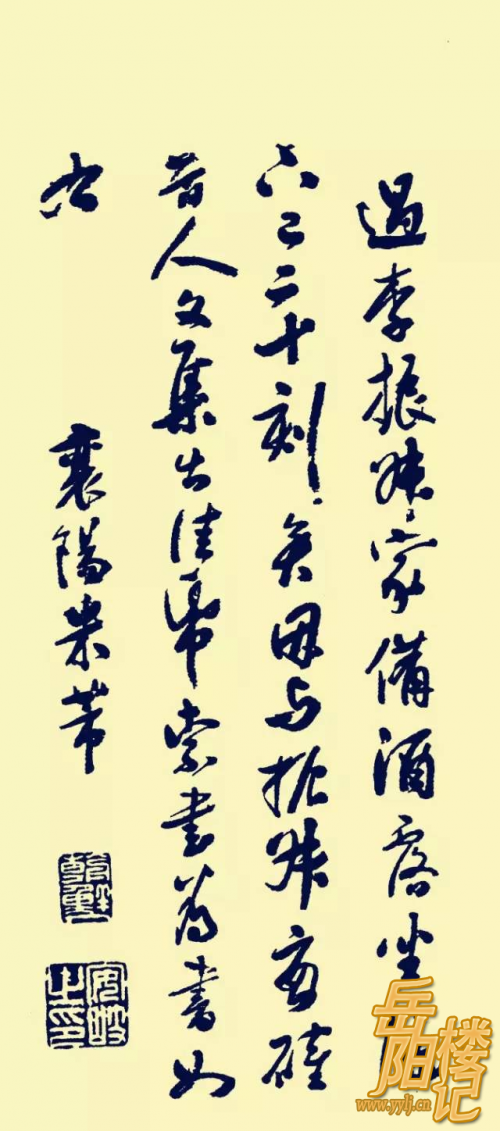 過李振叔家備酒露坐
六已二十刻矣因与振叔商確
昔人文集出佳帋索書為書如
右
襄陽米芾
岳阳楼记
www.yylj.cn